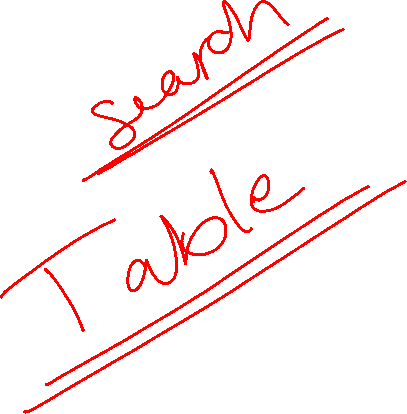 search
Table